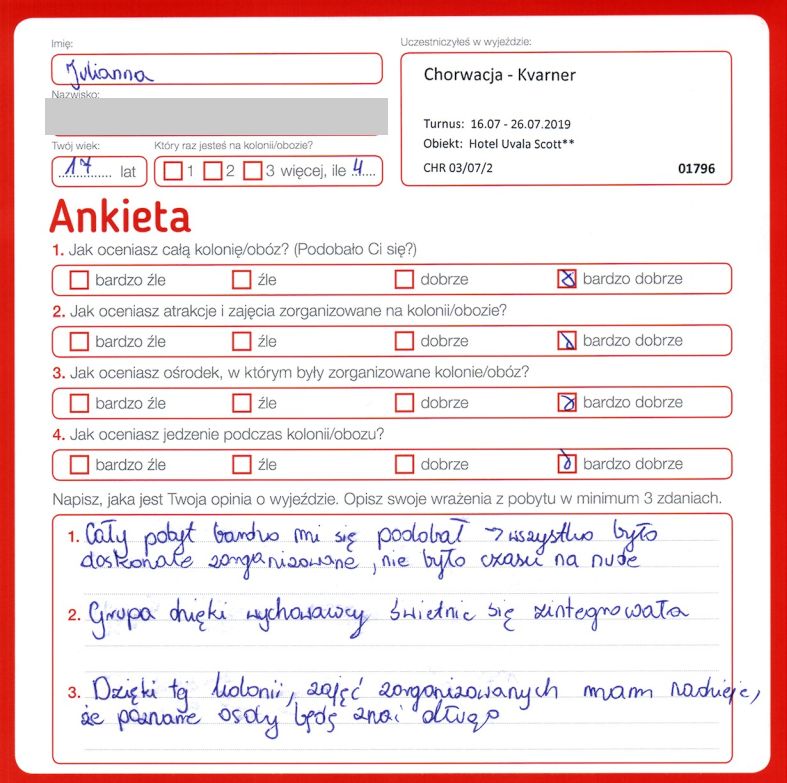 Imię:
Uczestniczyłeś w wyjeździe:
Julianna
Chorwacja - Kvarner
Nazwisko:
Turnus: 16.07 - 26.07.2019
Obiekt: Hotel Uvala Scott**
CHR 03/07/2 01796
Twój wiek: Który raz jesteś na kolonii/obozie?
17 lat 1 2 3 więcej, ile 4
Ankieta
1. Jak oceniasz całą kolonię/obóz? (Podobało Ci się?)
bardzo źle źle dobrze bardzo dobrze
2. Jak oceniasz atrakcje i zajęcia zorganizowane na kolonii/obozie?
bardzo źle źle dobrze bardzo dobrze
3. Jak oceniasz ośrodek, w którym były zorganizowane kolonie/obóz?
bardzo źle źle dobrze bardzo dobrze
4. Jak oceniasz jedzenie podczas kolonii/obozu?
bardzo źle źle dobrze bardzo dobrze
Napisz, jaka jest Twoja opinia o wyjeździe. Opisz swoje wrażenia z pobytu w minimum 3 zdaniach.
1. Cały pobyt bardzo mi się podobał → wszystko było
doskonale zorganizowane, nie było czasu na nudę
2. Grupa dzięki wychowawcy świetnie się zintegrowała
3. Dzięki tej kolonii, zajęć zorganizowanych mam nadzieje,
że poznane osoby będę znać długo